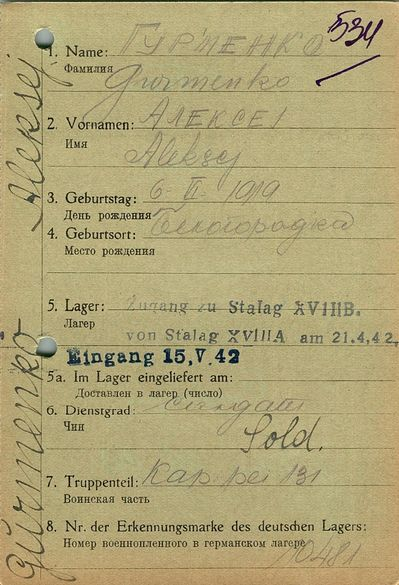 534
1. Name: ГУРМЕНКО
Фамилия Gurmenko
2. Vornamen: АЛЕКСЕІ
Имя
Aleksej
3. Geburtstag: 6 II 1919
День рождения
4. Geburtsort: Белогородка
Место рождения
5. Lager: Zugang zu Stalag XVIIIB.
Лагерь
von Stalag XVIIIA am 21.4.42.
Eingang 15.V.42
5a. Im Lager eingeliefert am:
Доставлен в лагерь (число)
6. Dienstgrad:
Чин
Sold.
7. Truppenteil: 131
Воинская часть
8. Nr. der Erkennungsmarke des deutschen Lagers:
Номер военнопленного в германском лагере
10481
Gurmenko Aleksej